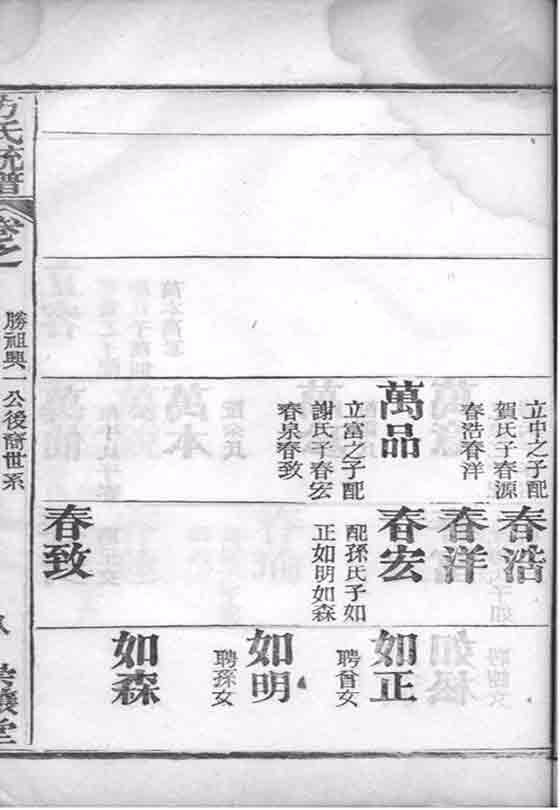 立中之子配
賀氏子春源
春浩春洋
萬品
立富之子配
謝氏子春宏
春泉春致
春浩
春洋
春宏
配孫氏子如
正如明如森
春致
如正
聘曾女
如明
聘孫女
如森
方氏統譜
卷之
勝祖興一公後裔世系